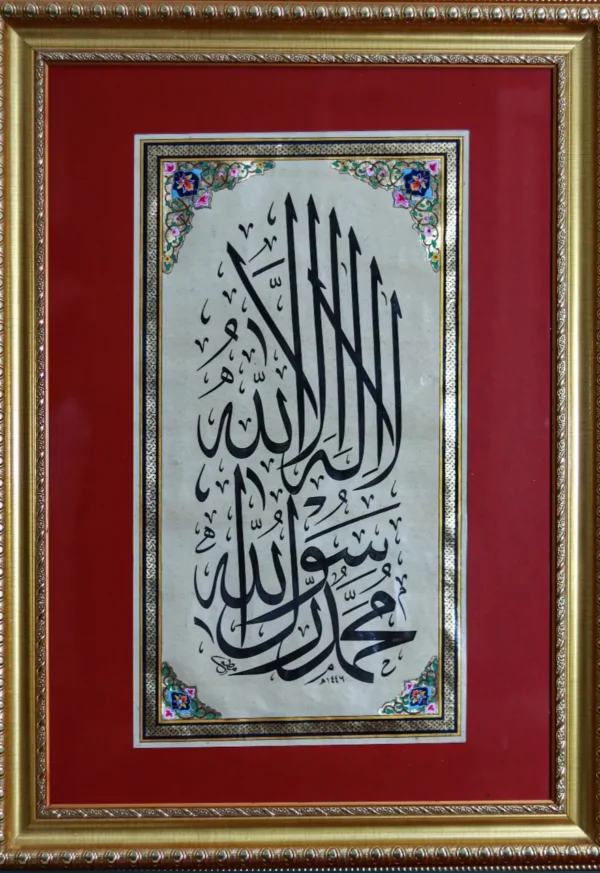 لا اله الا الله
محمد رسول الله
١٤٤٦هـ